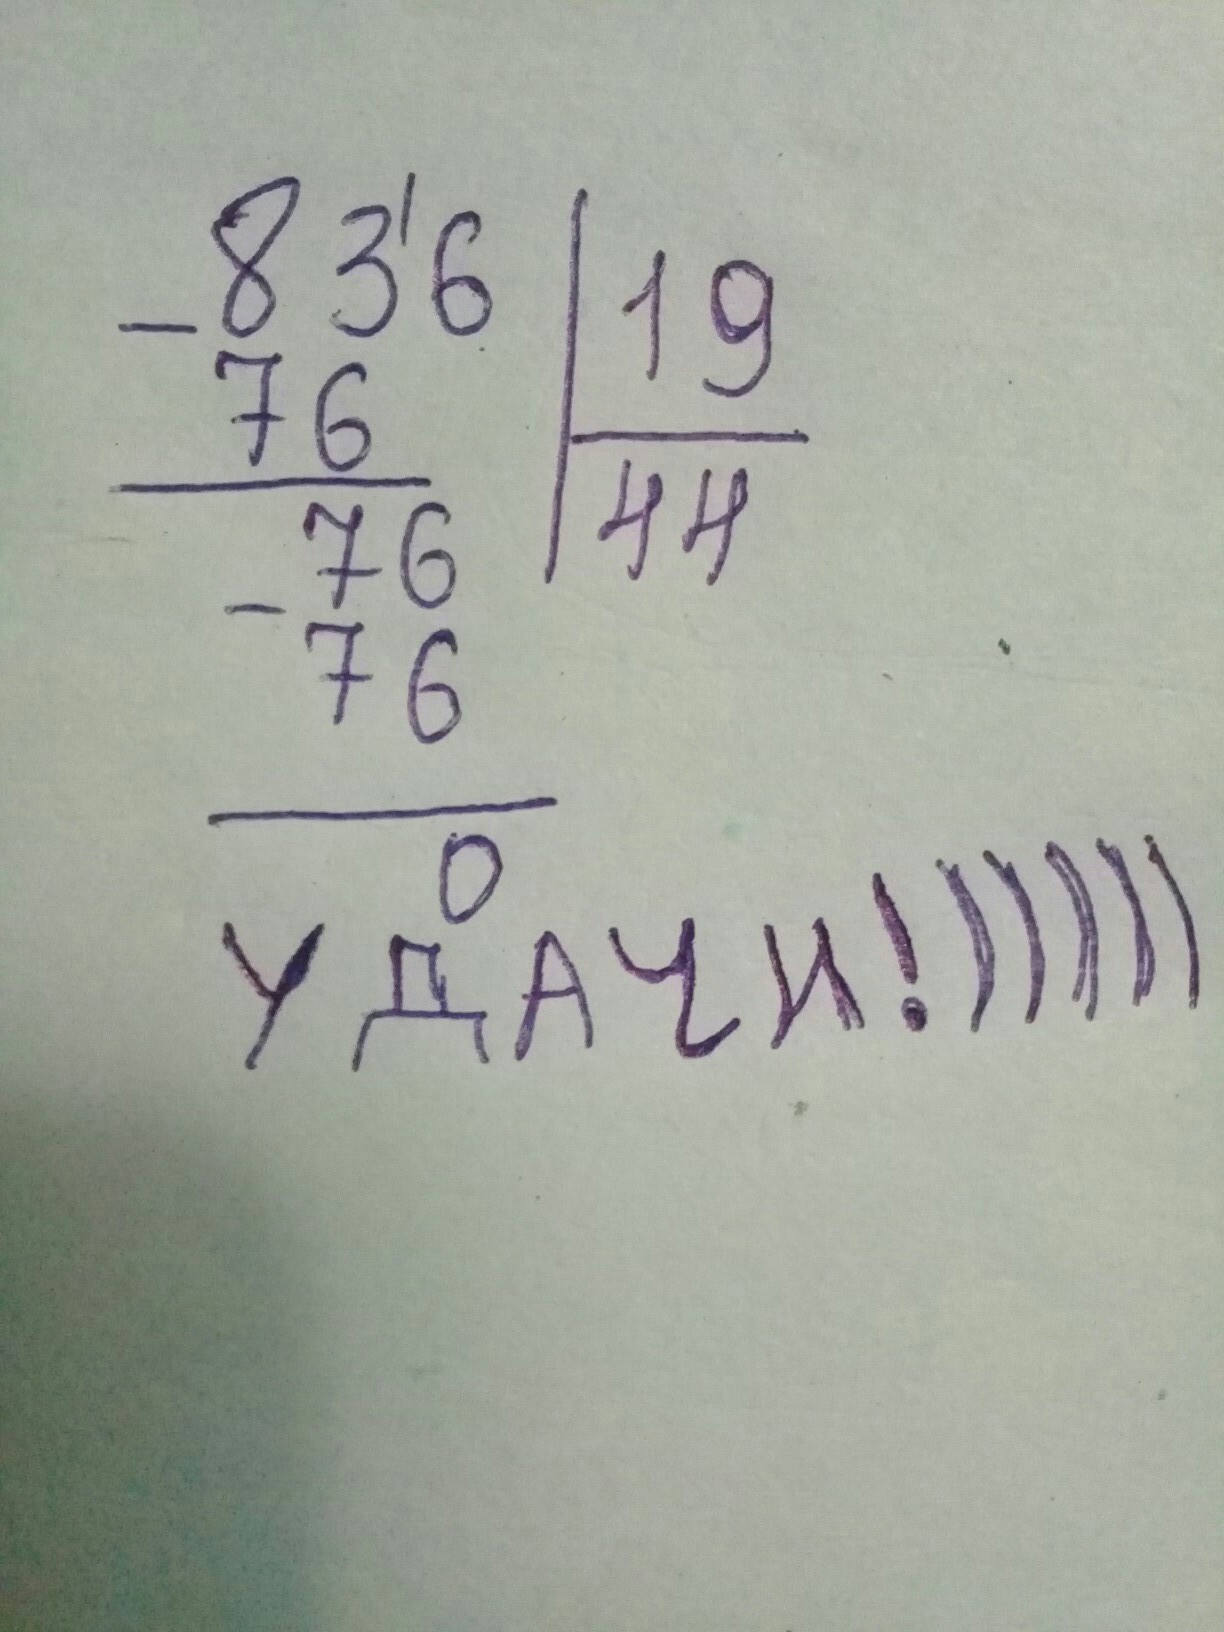 -83'6 | 19
76 | 44
76
-76
0
УДАЧИ!)))))